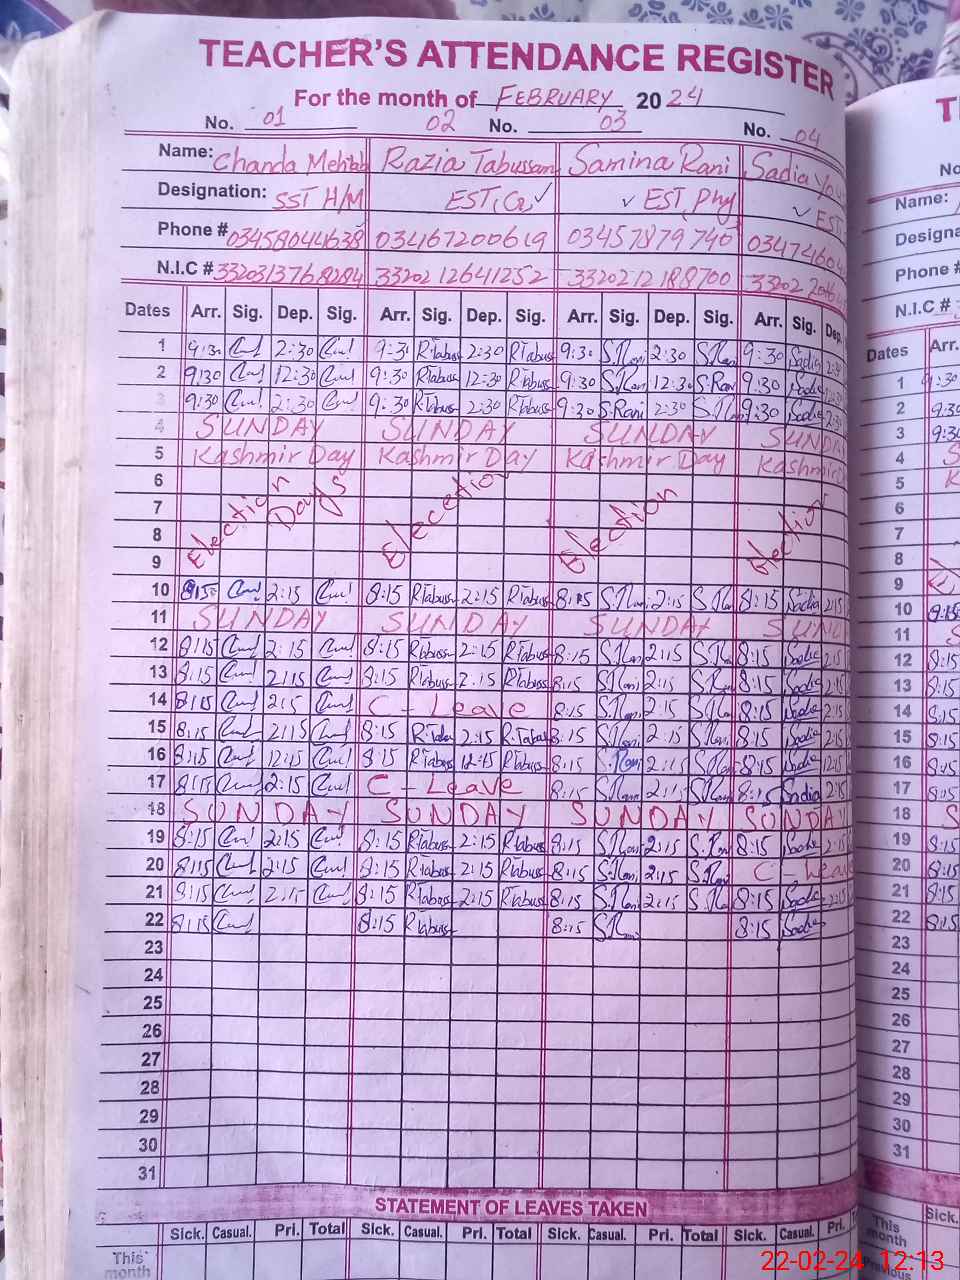 TEACHER'S ATTENDANCE REGISTER
For the month of FEBRUARY 20 24
No. 01 02 No. 03 No. 04
Name: Chanda Mehtab Razia Tabussam Samina Rani Sadia
Designation: SST H/M EST, ✓ ✓ EST, Phy ✓ EST
Phone # 03458044638 03467200619 03457879740 03474604
N.I.C # 3320313768284 3320212641252 3320212188700 33202
Dates Arr. Sig. Dep. Sig. Arr. Sig. Dep. Sig. Arr. Sig. Dep. Sig. Arr. Sig. Dep
1 9:30 2:30 9:30 RTabuss 2:30 RTabuss 9:30 S.Rani 2:30 S.Rani 9:30 Sadia 2:30
2 9:30 12:30 9:30 RTabuss 12:30 RTabuss 9:30 S.Rani 12:30 S.Rani 9:30 Sadia
3 9:30 2:30 9:30 RTabuss 2:30 RTabuss 9:30 S.Rani 2:30 S.Rani 9:30 Sadia 2:30
4 SUNDAY SUNDAY SUNDAY SUNDAY
5 Kashmir Day Kashmir Day Kashmir Day Kashmir
6
7 Election Days Elecetion Election Election
8
9
10 8:15 2:15 8:15 RTabuss 2:15 RTabuss 8:15 S.Rani 2:15 S.Rani 8:15 Sadia 2:15
11 SUNDAY SUNDAY SUNDAY SUND
12 8:15 2:15 8:15 RTabuss 2:15 RTabuss 8:15 S.Rani 2:15 S.Rani 8:15 Sadia 2:15
13 8:15 2:15 8:15 RTabuss 2:15 RTabuss 8:15 S.Rani 2:15 S.Rani 8:15 Sadia 2:15
14 8:15 2:15 C - Leave 8:15 S.Rani 2:15 S.Rani 8:15 Sadia 2:15
15 8:15 2:15 8:15 R.Tabuss 2:15 R.Tabuss 8:15 S.Rani 2:15 S.Rani 8:15 Sadia 2:15
16 8:15 12:15 8:15 RTabuss 12:15 RTabuss 8:15 S.Rani 2:15 S.Rani 8:15 Sadia 12:15
17 8:15 2:15 C - Leave 8:15 S.Rani 2:15 S.Rani 8:15 Sadia 2:15
18 SUNDAY SUNDAY SUNDAY SUNDAY
19 8:15 2:15 8:15 RTabuss 2:15 RTabuss 8:15 S.Rani 2:15 S.Rani 8:15 Sadia 2:15
20 8:15 2:15 8:15 RTabuss 2:15 RTabuss 8:15 S.Rani 2:15 S.Rani C - Leave
21 8:15 2:15 8:15 RTabuss 2:15 RTabuss 8:15 S.Rani 2:15 S.Rani 8:15 Sadia 2:15
22 8:15 8:15 RTabuss 8:15 S.Rani 8:15 Sadia
23
24
25
26
27
28
29
30
31
STATEMENT OF LEAVES TAKEN
Sick. Casual. Pri. Total Sick. Casual. Pri. Total Sick. Casual. Pri. Total Sick. Casual. Pri.
This month
No
Name:
Designa
Phone #
N.I.C #
Dates Arr.
1 9:30
2 9:30
3 9:30
4 S
5 K
6
7
8
9
10 8:15
11 S
12 8:15
13 8:15
14 8:15
15 8:15
16 8:15
17 8:15
18 S
19 8:15
20 8:15
21 8:15
22 8:15
23
24
25
26
27
28
29
30
31
Sick.
This month
Previous
22-02-24 12:13